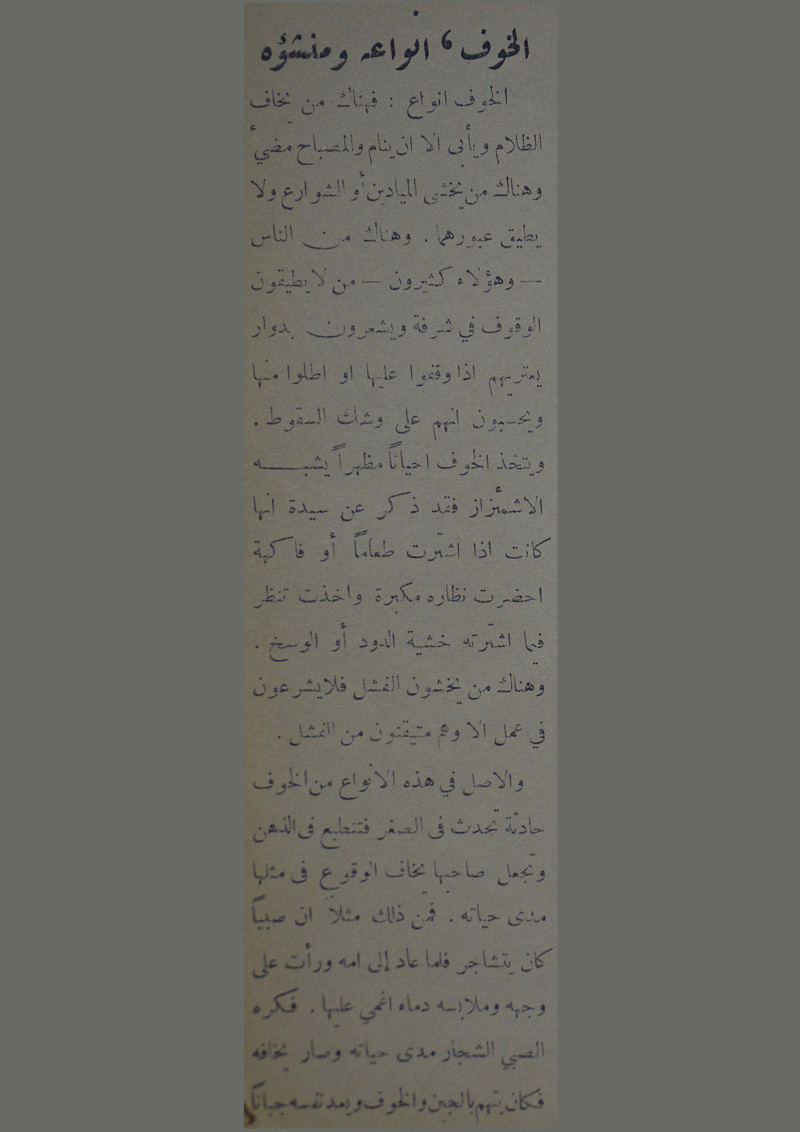 الخوف ، انواعه ومنشؤه
الخوف انواع : فهناك من يخاف
الظلام ويأبى الا ان ينام والمصباح مضيء
وهناك من يخشى الميادين أو الشوارع ولا
يطيق عبورهما . وهناك من الناس
— وهؤلاء كثيرون — من لا يطيقون
الوقوف في شرفة ويشعرون بدوار
يعتريهم اذا وقفوا عليها او اطلوا منها
ويحسبون انهم على وشك السقوط .
ويتخذ الخوف احياناً مظهراً يشبـــه
الاشمئزاز فقد ذكر عن سيدة انها
كانت اذا اشترت طعاماً أو فاكهة
احضرت نظاره مكبرة واخذت تنظر
فيما اشترته خشية الدود أو الوسخ .
وهناك من يخشون الفشل فلا يشرعون
في عمل الا وهم متيقنون من الفشل .
والاصل في هذه الانواع من الخوف
حادثة تحدث فى الصغر فتنطبع فى الذهن
وتجعل صاحبها يخاف الوقوع فى مثلها
مدى حياته . فمن ذلك مثلاً ان صبياً
كان يتشاجر فلما عاد إلى امه ورأت على
وجهه وملابسه دماء اغمي عليها . فكره
الصبي الشجار مدى حياته وصار يخافه
فكان يتهم بالجبن والخوف ويعد نفسه جباناً